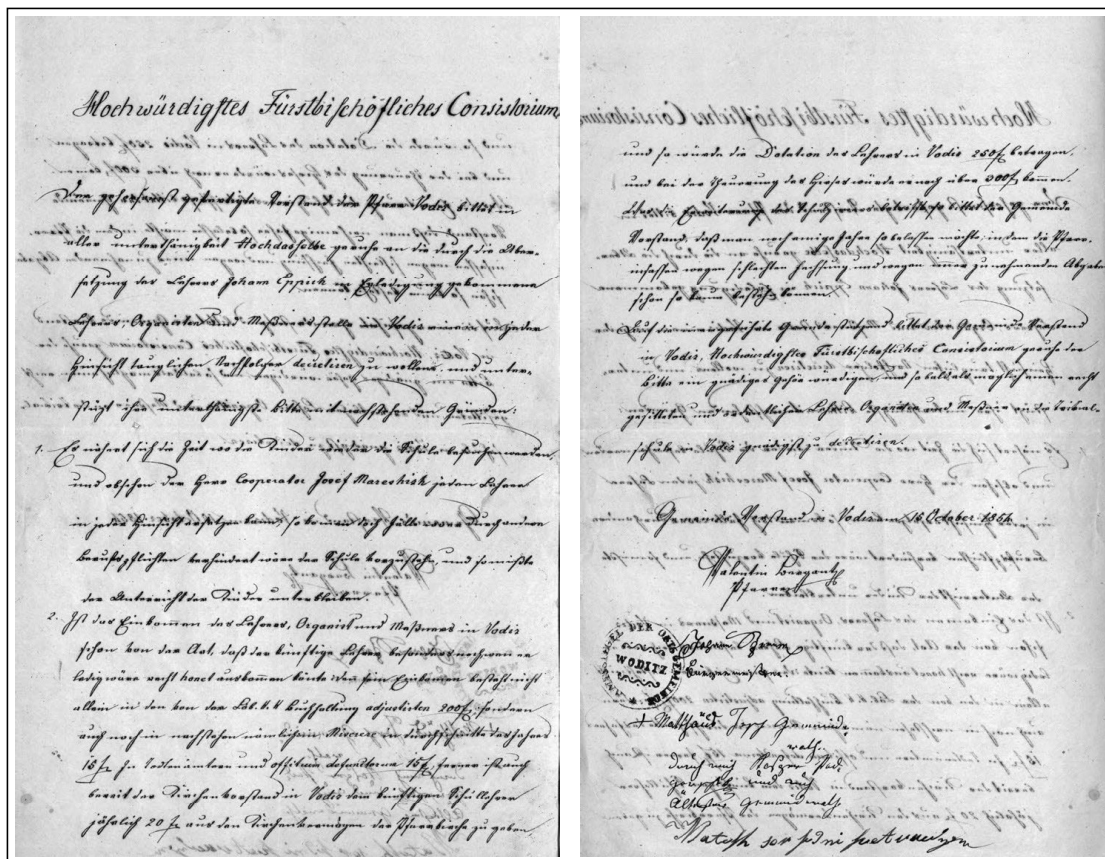 Hochwürdigstes Fürstbischöfliches Consistorium,
Der gehorsamst gefertigte Vorstand der Pfarr Vodiz bittet in
aller unterthänigkeit Hochdasselbe geruhe an die durch die Uber-
setzung des Lehrers Johann Eppich in Erledigung gekommene
Lehrers, Organisten und Meßnersstelle in Vodiz einen in jeder
Hinsicht tauglichen Nachfolger decretiren zu wollen, und unter-
stüzt ihre unterthänigste bitte mit nachstehenden Gründen:
1. Es nähert sich die Zeit wo die Kinder wieder die Schule besuchen werden,
und obschon der Herr Cooperator Josef Mareshizh jeden Lehrer
in jeder Hinsicht ersetzen kann, so können doch Fälle wo er durch andere
berufspflichten verhindert wäre der Schule vorzustehen, und so müßte
der Unterricht der Kinder unterbleiben.
2. Ist das Einkommen des Lehrers, Organist und Meßners in Vodiz
schon von der Art, daß der künftige Lehrer besonders noch wenn er
ledig wäre recht honet auskommen könte, den sein Einkommen besteht nicht
allein in den von der Lob. k. k. buchhaltung adjustirten 200 f, sondern
auch noch in nachstehen nämlich in Miserere in durchschnitte des Jahres
15 f. In Seelenämtern und offitium defunctorum 15 f, ferner ist auch
bereit der Kirchenvorstand in Vodiz dem künftigen Schullehrer
jährlich 20 f aus den Kirchenvermögen der Pfarrkirche zu geben
und so würde die Dotation des Lehrers in Vodiz 250 f. betragen,
und bei der Theuerung des Hieser würde er noch über 300 f kommen.
die Erweiterung der Schule betrifft bittet der Gemeinde
Vorstand, daß man noch einige Jahre so belassen möchte, indem die Pfarr-
insassen wegen schlechten Fechsung und wegen immer zunehmenden Abgaben
schon so kaum bestehen können.
Auf die hier angeführte Gründe stützend bittet der Gemeinde Vorstand
in Vodiz, Hochwürdigstes Fürstbischöfliches Consistorium geruhe der
bitte ein gnädiges Gehör würdigen und so bald als möglich einen recht
gesitteten und ordentlichen Lehrer, Organisten und Meßner an die Trivial-
schule in Vodiz gnädigst zu decretiren.
Gemeinde Vorstand in Vodiz am 16 October 1854
Valentin Bergant
Pfarrer
SIEGEL DER ORTSGEMEINDE
WODITZ
Johann
Bürgermeister.
+ Matthäus Gemeinde-
rath.
durch mich
und auch
Altester Gemeindrath